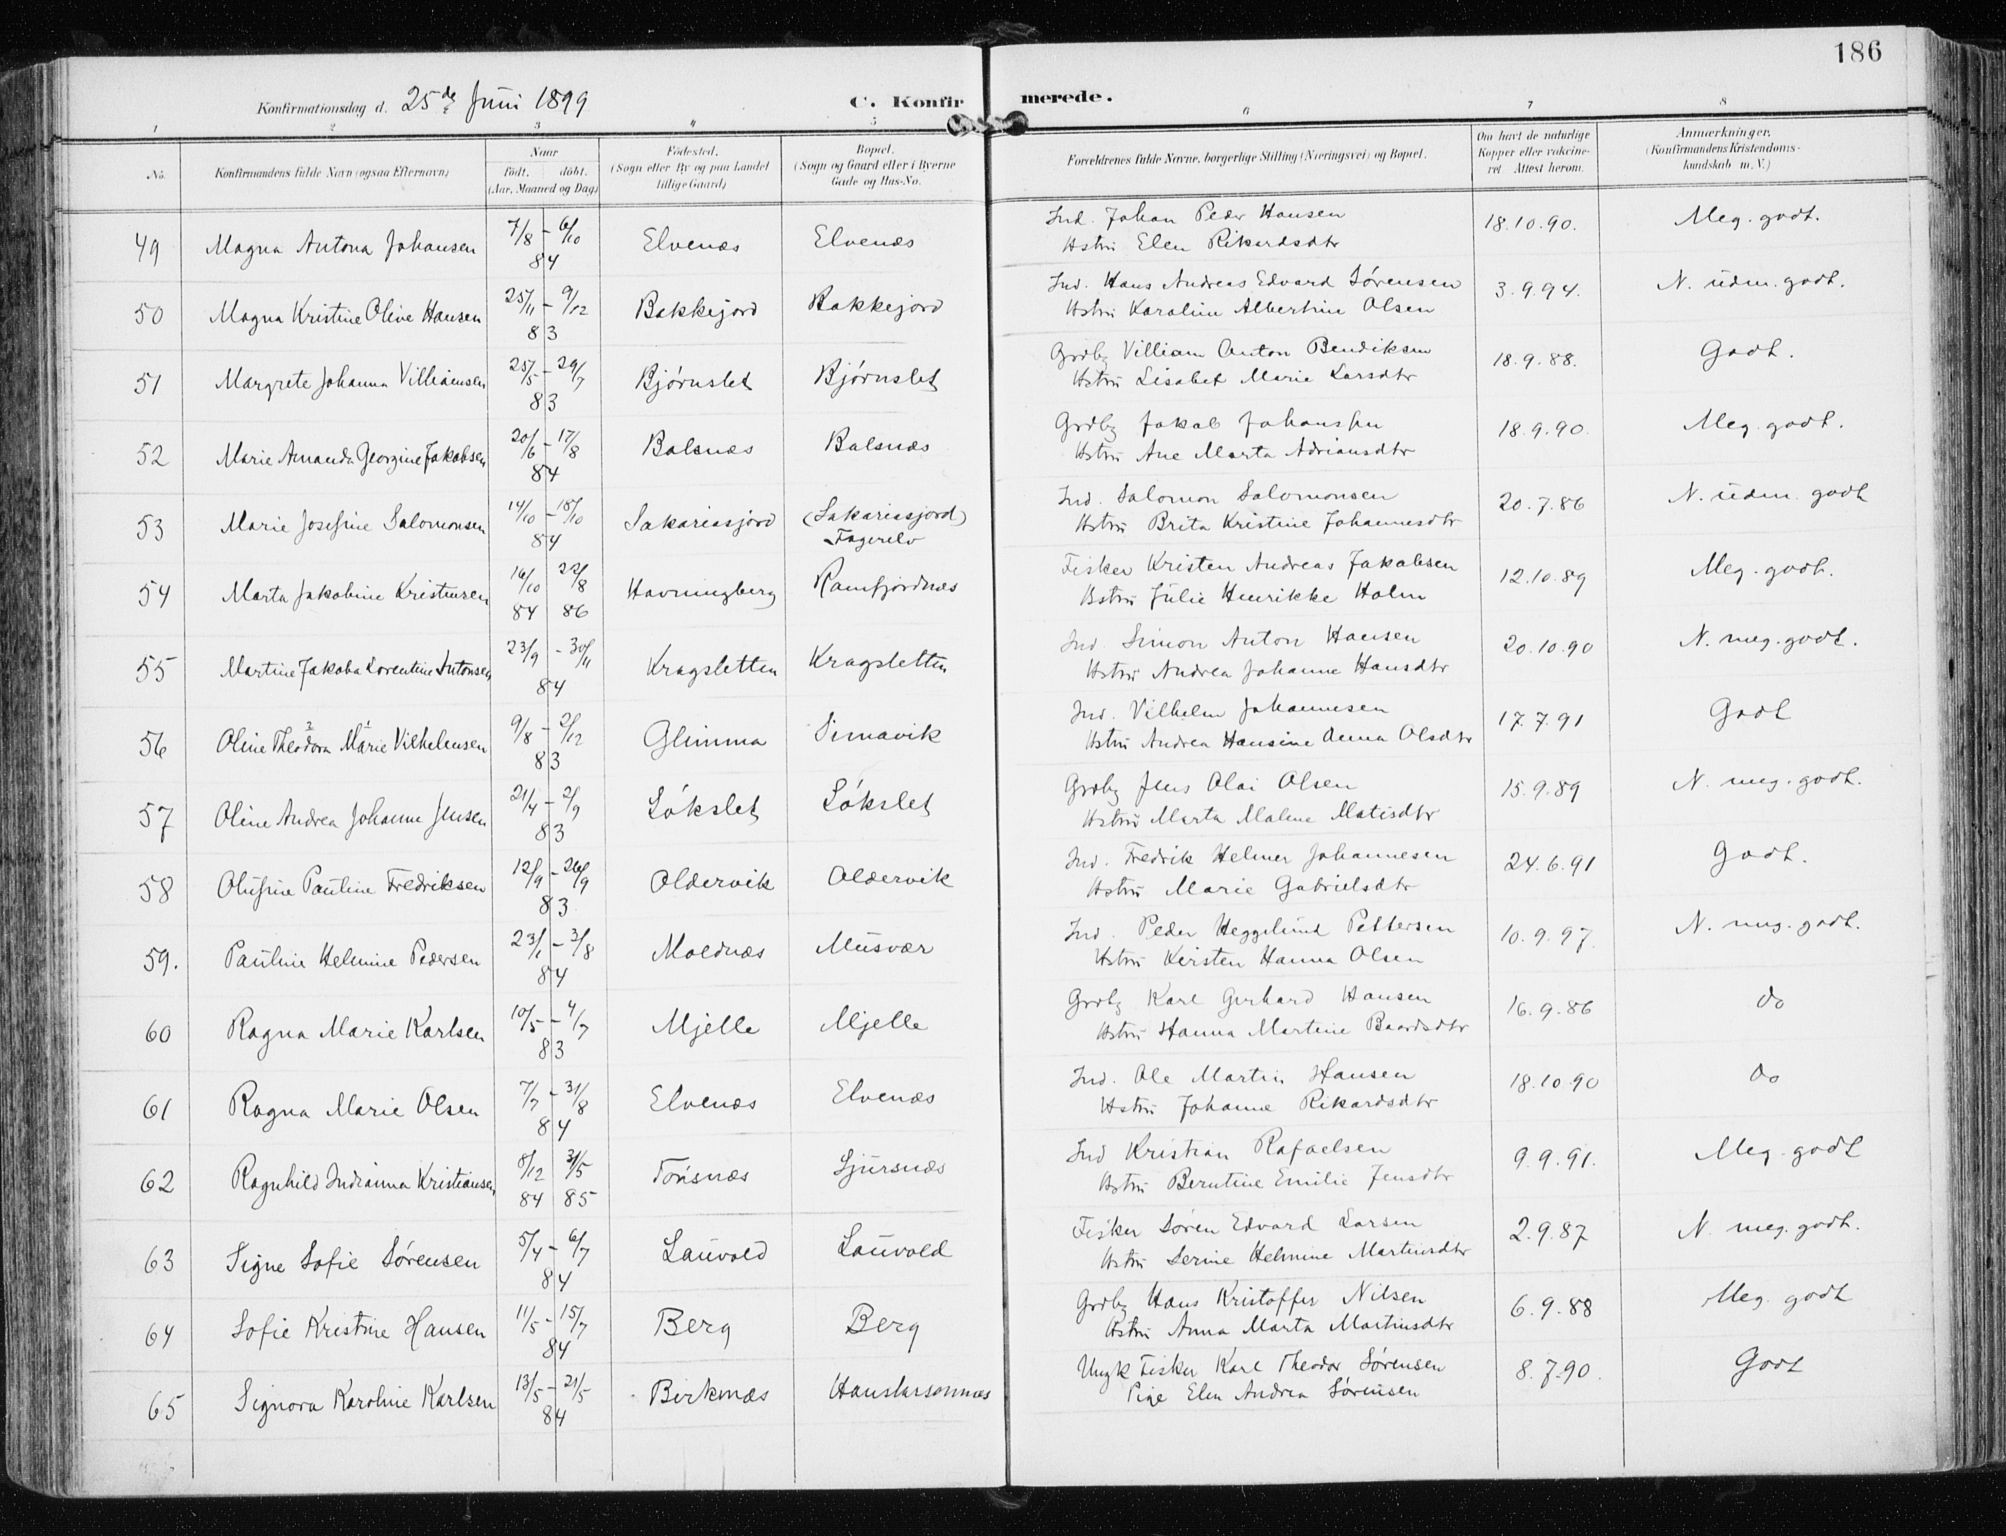 186
Konfirmationsdag d. 25de Juni 1899 C. Konfirmerede.
1 2 3 4 5 6 7 8
No. Konfirmandens fulde Navn (ogsaa Efternavn) Naar født. døbt. (Aar, Maaned og Dag) Fødested. (Sogn eller By og paa Landet tillige Gaard) Bopæl. (Sogn og Gaard eller i Byerne Gade og Hus-No. Forældrenes fulde Navne, borgerlige Stilling (Næringsvei) og Bopæl. Om havt de naturlige Kopper eller vaksineret Attest herom. Anmærkninger. (Konfirmandens Kristendomskundskab m. V.)
49 Magna Antona Johansen 7/8 - 6/10 84 Elvenæs Elvenæs Ind. Johan Peder Hansen Hstru Elen Rikardsdtr 18.10.90. Meg. godt.
50 Magna Kristine Olive Hansen 25/11 - 9/12 83 Bakkejord Bakkejord Ind. Hans Andreas Edvard Sørensen Hstru Karoline Albertine Olsen 3.9.94. N. udm. godt.
51 Margrete Johanna Villiamsen 25/5 - 29/7 83 Bjørnslet Bjørnslet Grdbg Villiam Anton Bendiksen Hstru Lisabet Marie Larsdtr 18.9.88. Godt.
52 Marie Amanda Georgine Jakobsen 20/6 - 17/8 84 Balsnæs Balsnæs Grdbg Jakob Johansen Hstru Ane Marta Adriansdtr 18.9.90. Meg. godt.
53 Marie Josefine Salomonsen 14/10 - 18/10 84 Sakariasjord (Sakariasjord) Fagerelv Ind. Salomon Salomonsen Hstru Brita Kristine Johannesdtr 20.7.86 N. udm. godt
54 Marta Jakobine Kristensen 16/10 84 22/8 86 Havningberg Ramfjordnæs Fisker Kristen Andreas Jakobsen Hstru Julie Henrikke Holm 12.10.89 Meg. godt.
55 Martine Jakoba Lorentine Antonsen 23/9 - 30/11 84 Kragsletten Kragsletten Ind. Simon Anton Hansen Hstru Andrea Johanne Hansdtr 20.10.90 N. meg. godt.
56 Oline Theodora Marie Vilhelmsen 9/8 - 2/12 83 Glimma Simavik Ind. Vilhelm Johannesen Hstru Andrea Hansine Anna Olsdtr 17.7.91 Godt
57 Oline Andrea Johanne Jensen 21/4 - 2/9 83 Løkslet Løkslet Grdbg Jens Olai Olsen Hstru Marta Malene Matisdtr 15.9.89 N. meg. godt.
58 Olufine Pauline Fredriksen 12/9 - 26/9 83 Oldervik Oldervik Ind. Fredrik Helmer Johannesen Hstru Marie Gabrielsdtr 24.6.91 Godt.
59. Pauline Helmine Pedersen 23/1 - 3/8 84 Moldnæs Musvær Ind. Peder Heggelund Pettersen Hstru Kirsten Hanna Olsen 10.9.97. N. meg. godt.
60 Ragna Marie Karlsen 10/5 - 4/7 83 Mjelle Mjelle Grdbg Karl Gerhard Hansen Hstru Hanna Martine Baardsdtr 16.9.86 do
61 Ragna Marie Olsen 7/7 - 31/8 84 Elvenæs Elvenæs Ind. Ole Martin Hansen Hstru Johanne Rikardsdtr 18.10.90 do
62 Ragnhild Indianna Kristiansen 8/12 84 31/5 85 Tønsnæs Sjursnæs Ind Kristian Rafaelsen Hstru Berntine Emilie Jensdtr 9.9.91. Meg. godt
63 Signe Sofie Sørensen 5/4 - 6/7 84 Lauvold Lauvold Fisker Søren Edvard Larsen Hstru Serine Helmine Martinsdtr 2.9.87 N. meg. godt.
64 Sofie Kristine Hansen 11/5 - 15/7 84 Berg Berg Grdbg Hans Kristoffer Nilsen Hstru Anna Marta Martinsdtr 6.9.88 Meg. godt
65 Signora Karoline Karlsen 13/5 - 21/5 84 Birknæs Hanslarsonnæs Ungk Fisker Karl Theodor Sørensen Pige Elen Andrea Sørensen 8.7.90. Godt